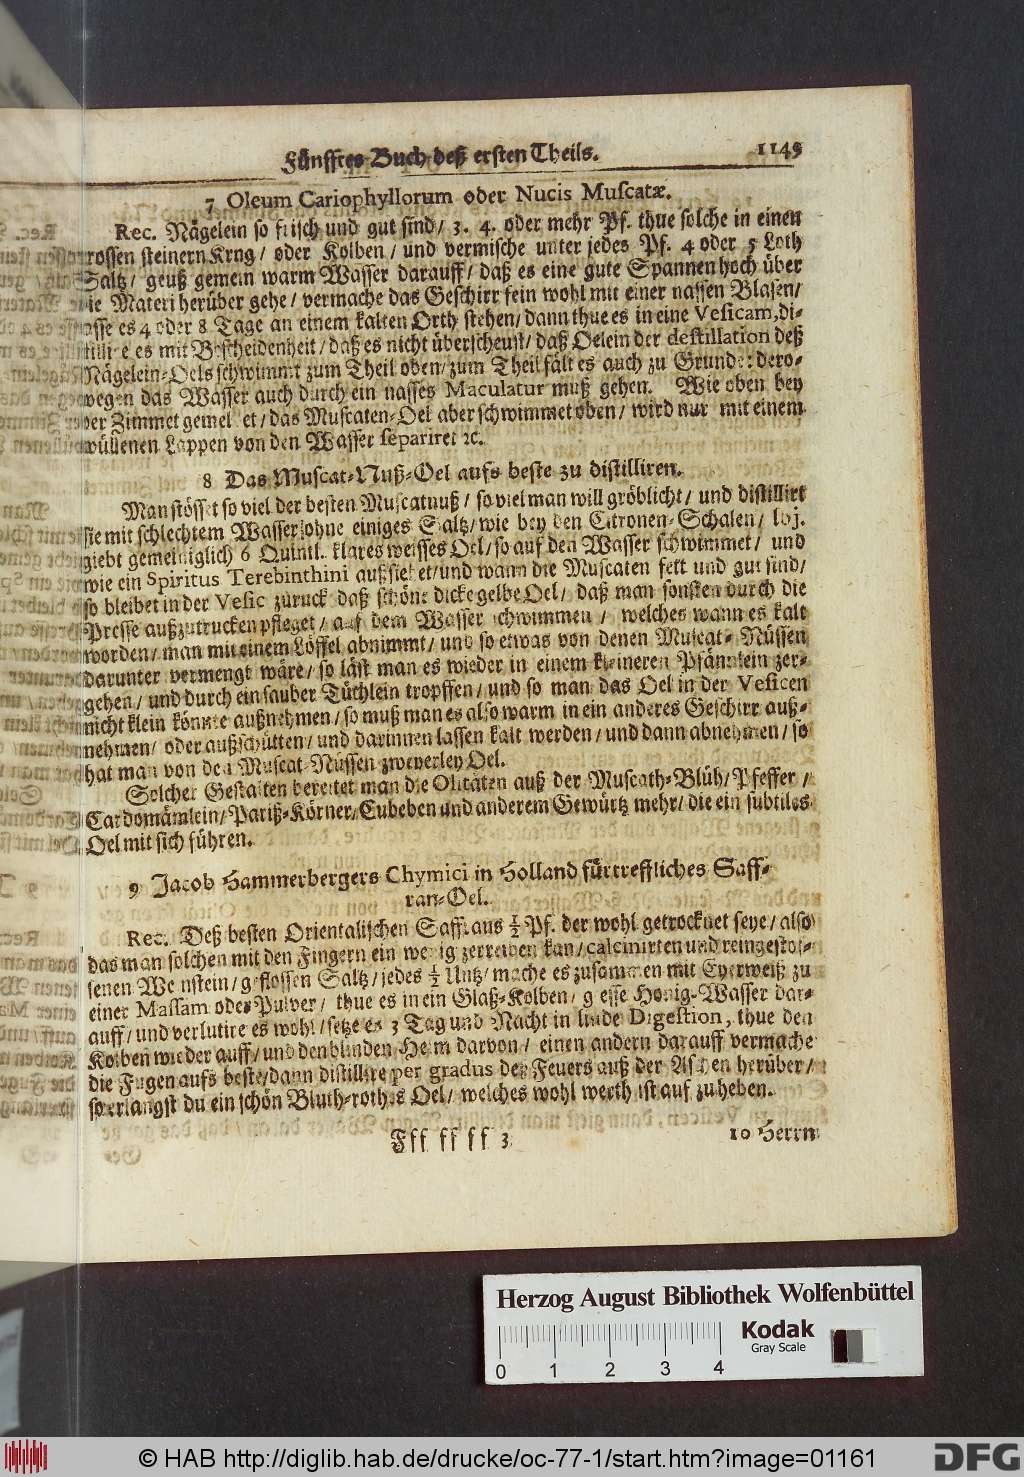 Fünfftes Buch deß ersten Theils. 1149
7 Oleum Cariophyllorum oder Nucis Muscatæ.
Rec. Nägelein so frisch und gut sind/ 3. 4. oder mehr Pf. thue solche in einen
rossen steinern Krug/ oder Kolben/ und vermische unter jedes Pf. 4 oder 5 Loth
Saltz/ geuß gemein warm Wasser darauff/ daß es eine gute Spannen hoch über
ie Materi herüber gehe/ vermache das Geschirr fein wohl mit einer nassen Blasen/
asse es 4 oder 8 Tage an einem kalten Orth stehen/ dann thue es in eine Vesicam, di-
stillire es mit Bescheidenheit/ daß es nicht überscheust/ daß Oelein der destillation deß
Nägelein-Oels schwimmt zum Theil oben/ zum Theil fält es auch zu Grunde: dero-
wegen das Wasser auch durch ein nasses Maculatur muß gehen. Wie oben bey
der Zimmet gemeldet/ das Muscaten-Oel aber schwimmet oben/ wird nur mit einem
wüllenen Lappen von den Wasser separiret ꝛc.
8 Das Muscat-Nuß-Oel aufs beste zu distilliren.
Man stösset so viel der besten Muscatnuß/ so viel man will gröblicht/ und distillirt
sie mit schlechtem Wasser/ ohne einiges Saltz/ wie bey den Citronen-Schalen/ lbj.
giebt gemeiniglich 6 Quintl. klares weisses Oel/ so auf den Wasser schwimmet/ und
wie ein Spiritus Terebinthini außsiehet/ und wann die Muscaten fett und gut sind/
so bleibet in der Vesic zuruck daß schöne dicke gelbe Oel/ daß man sonsten durch die
Presse außzutrucken pfleget/ auf dem Wasser schwimmen/ welches wann es kalt
worden/ man mit einem Löffel abnimmt/ und so etwas von denen Muscat-Nüssen
darunter vermengt wäre/ so läst man es wieder in einem kleineren Pfännlein zer-
gehen/ und durch ein sauber Tüchlein tropffen/ und so man das Oel in der Vesicen
nicht klein könnte außnehmen/ so muß man es also warm in ein anderes Geschirr auß-
nehmen/ oder außschütten/ und darinnen lassen kalt werden/ und dann abnehmen/ so
hat man von den Muscat-Nüssen zweyerley Oel.
Solcher Gestalten bereitet man die Olitäten auß der Muscath-Blüh/ Pfeffer/
Cardomämlein/ Pariß-Körner/ Cubeben und anderem Gewürtz mehr/ die ein subtiles
Oel mit sich führen.
9 Jacob Hammerbergers Chymici in Holland fürtreffliches Saff-
ran-Oel.
Rec. Deß besten Orientalischen Saffrans ½ Pf. der wohl getrocknet seye/ also
das man solchen mit den Fingern ein wenig zerreiben kan/ calcinirten und reingestos-
senen Weinstein/ geflossen Saltz/ jedes ½ Untz/ mache es zusammen mit Eyerweiß zu
einer Massam oder Pulver/ thue es in ein Glaß-Kolben/ giesse Honig-Wasser dar-
auff/ und verlutire es wohl/ setze es 3 Tag und Nacht in linde Digestion, thue den
Kolben wieder auff/ und den blinden Helm darvon/ einen andern darauff vermache
die Fugen aufs beste/ dann distillire per gradus des Feuers auß der Aschen herüber/
so erlangst du ein schön Bluth-rothes Oel/ welches wohl werth ist auf zuheben.
Fff ff ff 3 10 Herrn
Herzog August Bibliothek Wolfenbüttel
Kodak
Gray Scale
0 1 2 3 4
© HAB http://diglib.hab.de/drucke/oc-77-1/start.htm?image=01161
DFG